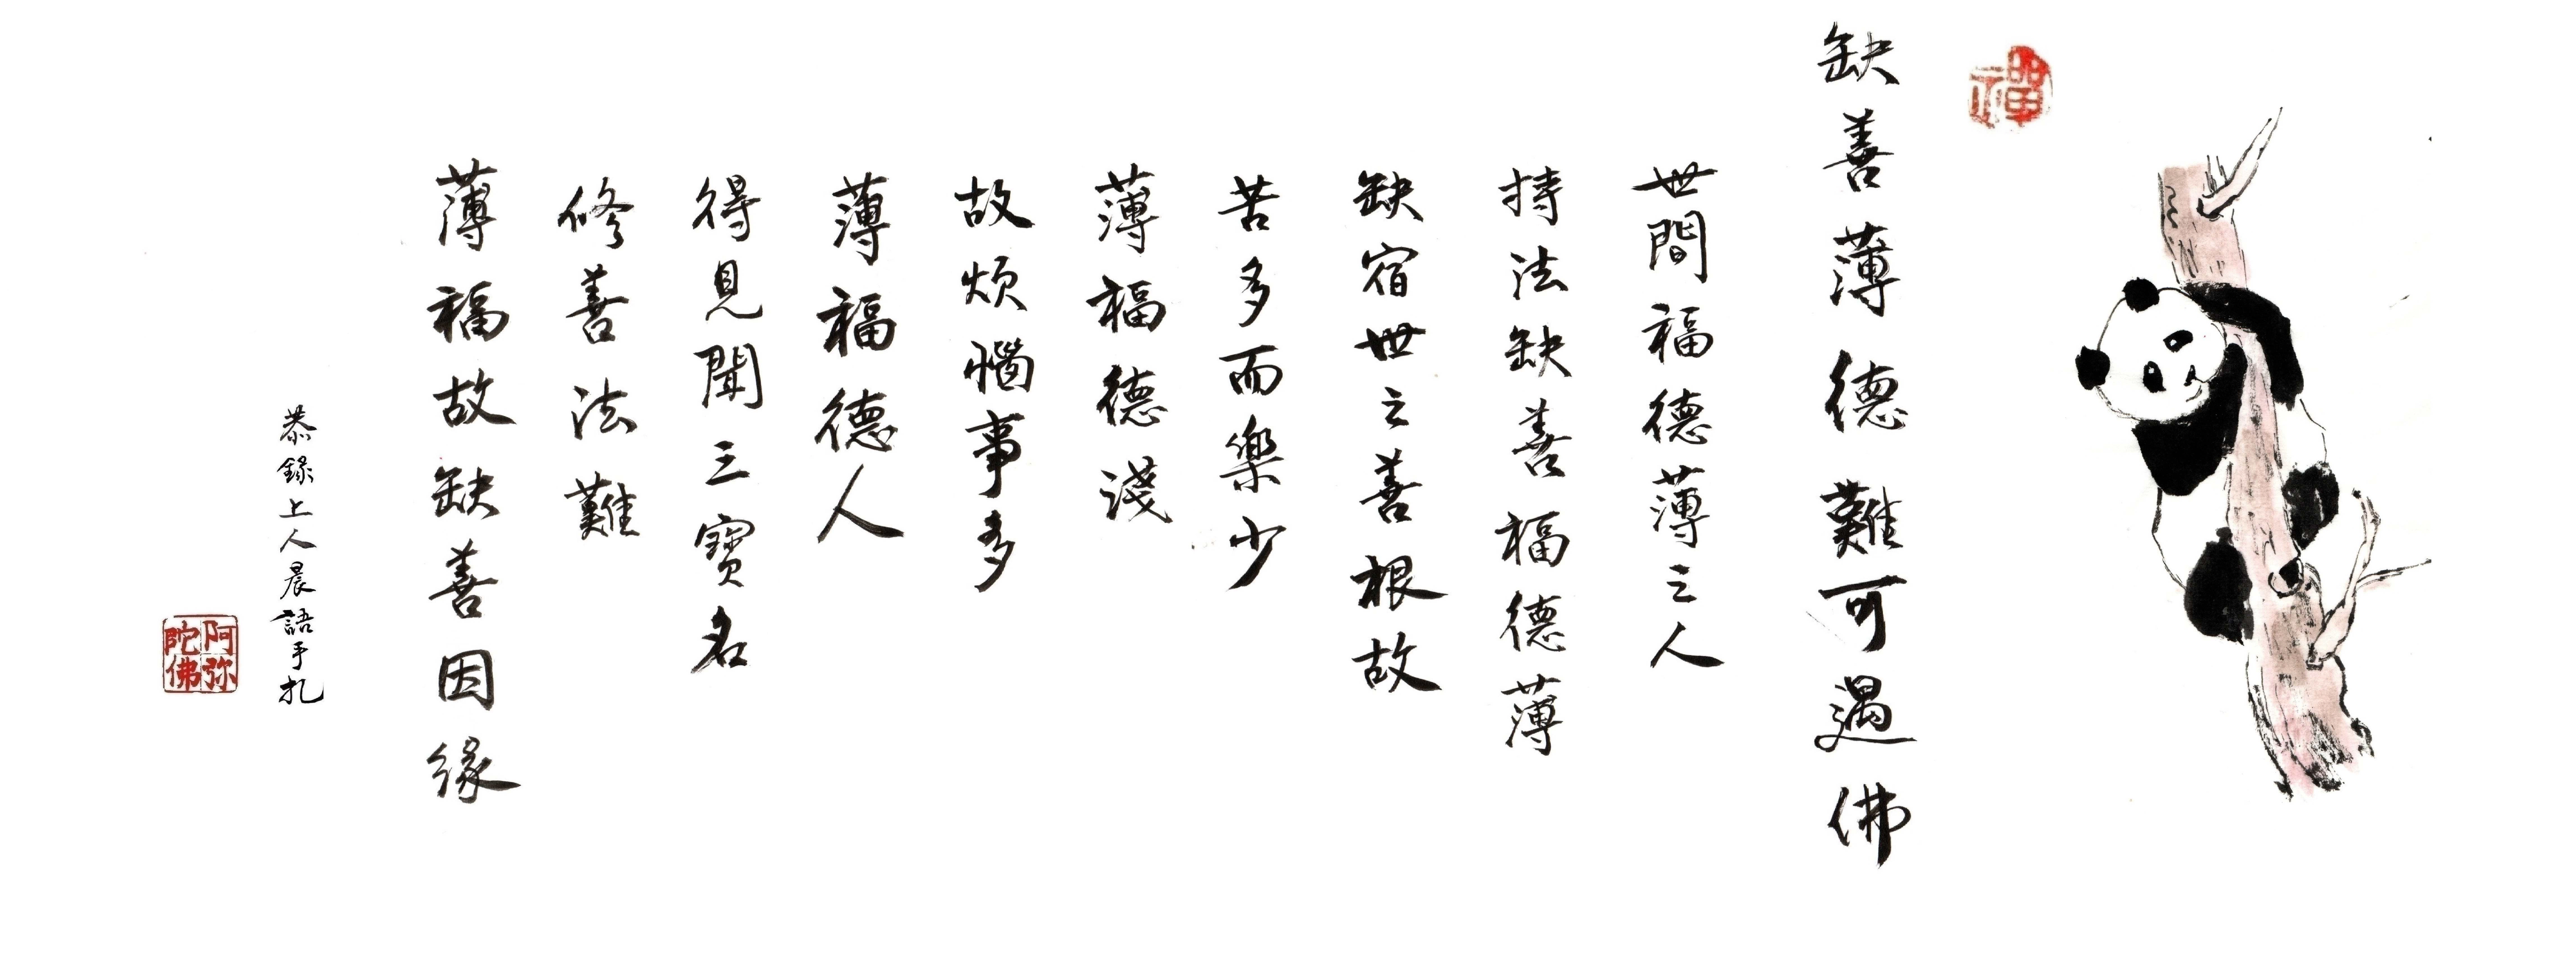 禪
缺善薄德難可遇佛
世間福德薄之人
持法缺善福德薄
缺宿世之善根故
苦多而樂少
薄福德淺
故煩惱事多
薄福德人
得見聞三寶名
修善法難
薄福故缺善因緣
恭錄上人晨語手札
阿弥陀佛